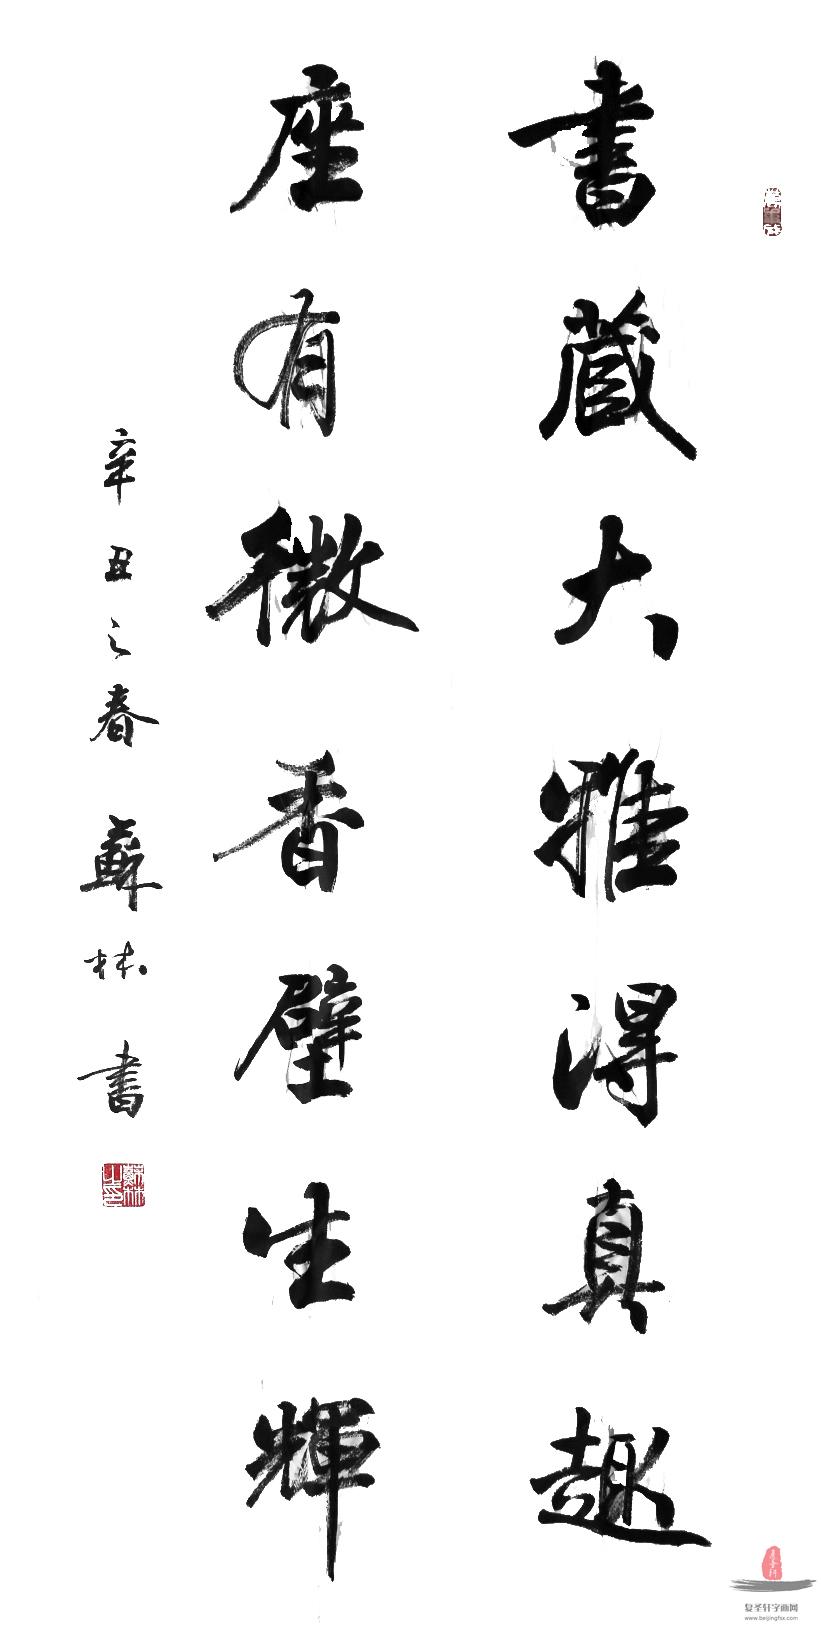 書藏大雅得真趣
座有微香壁生輝
辛丑之春 蘇林 書
蘇林之印
复圣轩字画网
www.beijingfsx.com